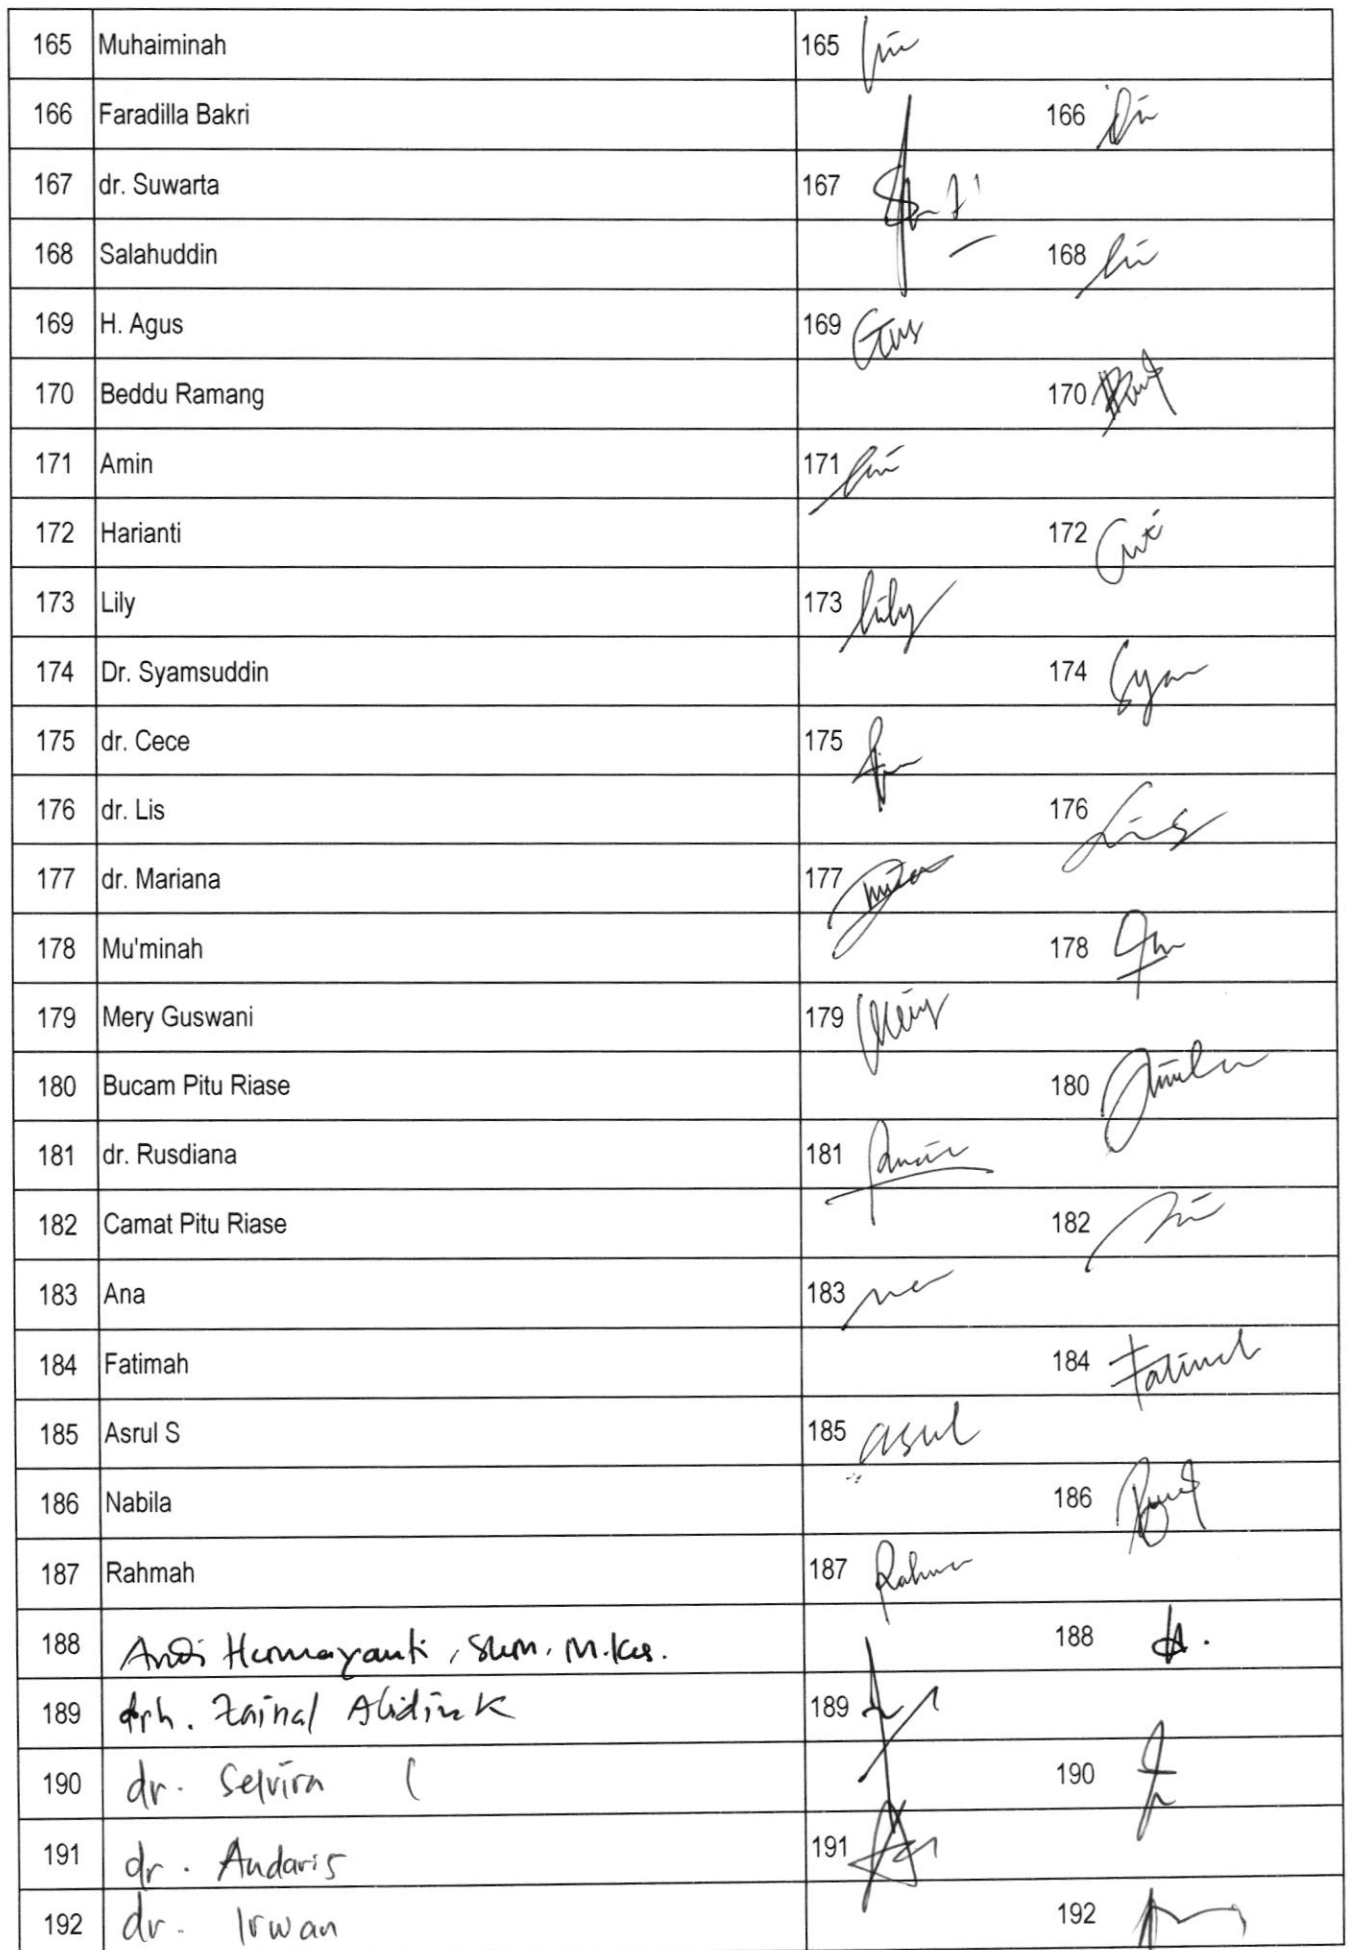 165 Muhaiminah 165
166 Faradilla Bakri 166
167 dr. Suwarta 167
168 Salahuddin 168
169 H. Agus 169
170 Beddu Ramang 170
171 Amin 171
172 Harianti 172
173 Lily 173 Lily
174 Dr. Syamsuddin 174 Syam
175 dr. Cece 175
176 dr. Lis 176 Lis
177 dr. Mariana 177
178 Mu'minah 178
179 Mery Guswani 179 Mery
180 Bucam Pitu Riase 180
181 dr. Rusdiana 181
182 Camat Pitu Riase 182
183 Ana 183
184 Fatimah 184 Fatimah
185 Asrul S 185 asrul
186 Nabila 186
187 Rahmah 187 Rahma
188 Andi Hermayanti, SKM. M.Kes. 188
189 drh. Zainal Abidin K 189
190 dr. Selvira 190
191 dr. Andaris 191
192 dr. Irwan 192